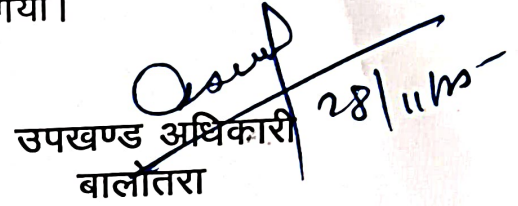 गया।
28/11/
उपखण्ड अधिकारी
बालोतरा